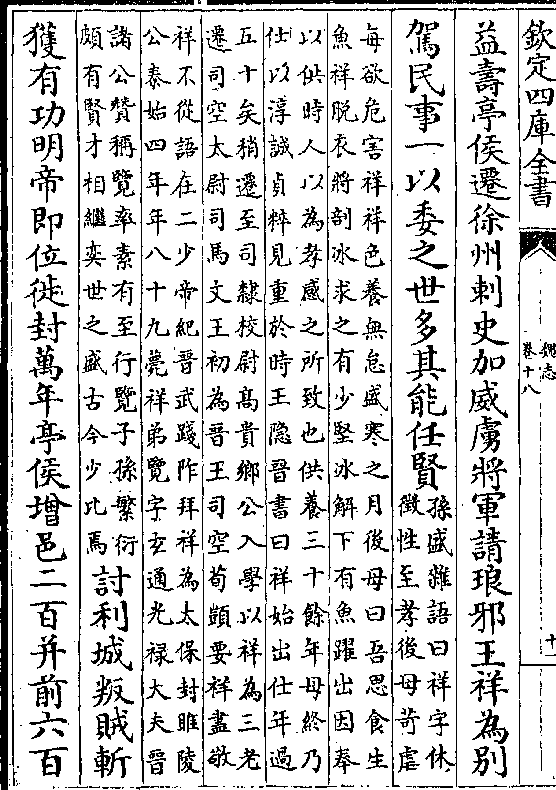 欽定四庫全書
魏志
卷十八
十一
益壽亭侯遷徐州刺史加威虜將軍請琅邪王祥為別
駕民事一以委之世多其能任賢
孫盛雜語曰祥字休
徵性至孝後母苛虐
每欲危害祥祥色養無怠盛寒之月後母曰吾思食生
魚祥脱衣將剖氷求之有少堅氷解下有魚躍出因奉
以供時人以為孝感之所致也供養三十餘年母終乃
仕以淳誠貞粹見重於時王隐晉書曰祥始出仕年過
五十矣稍遷至司隸校尉髙貴鄉公入學以祥為三老
遷司空太尉司馬文王初為晉王司空荀顗要祥盡敬
祥不從語在二少帝紀晉武踐阼拜祥為太保封睢陵
公泰始四年年八十九薨祥弟覽字玄通光禄大夫晉
諸公贊稱覽率素有至行覽子孫繁衍
頗有賢才相繼奕世之盛古今少比焉
討利城叛賊斬
獲有功明帝即位徙封萬年亭侯增邑二百并前六百